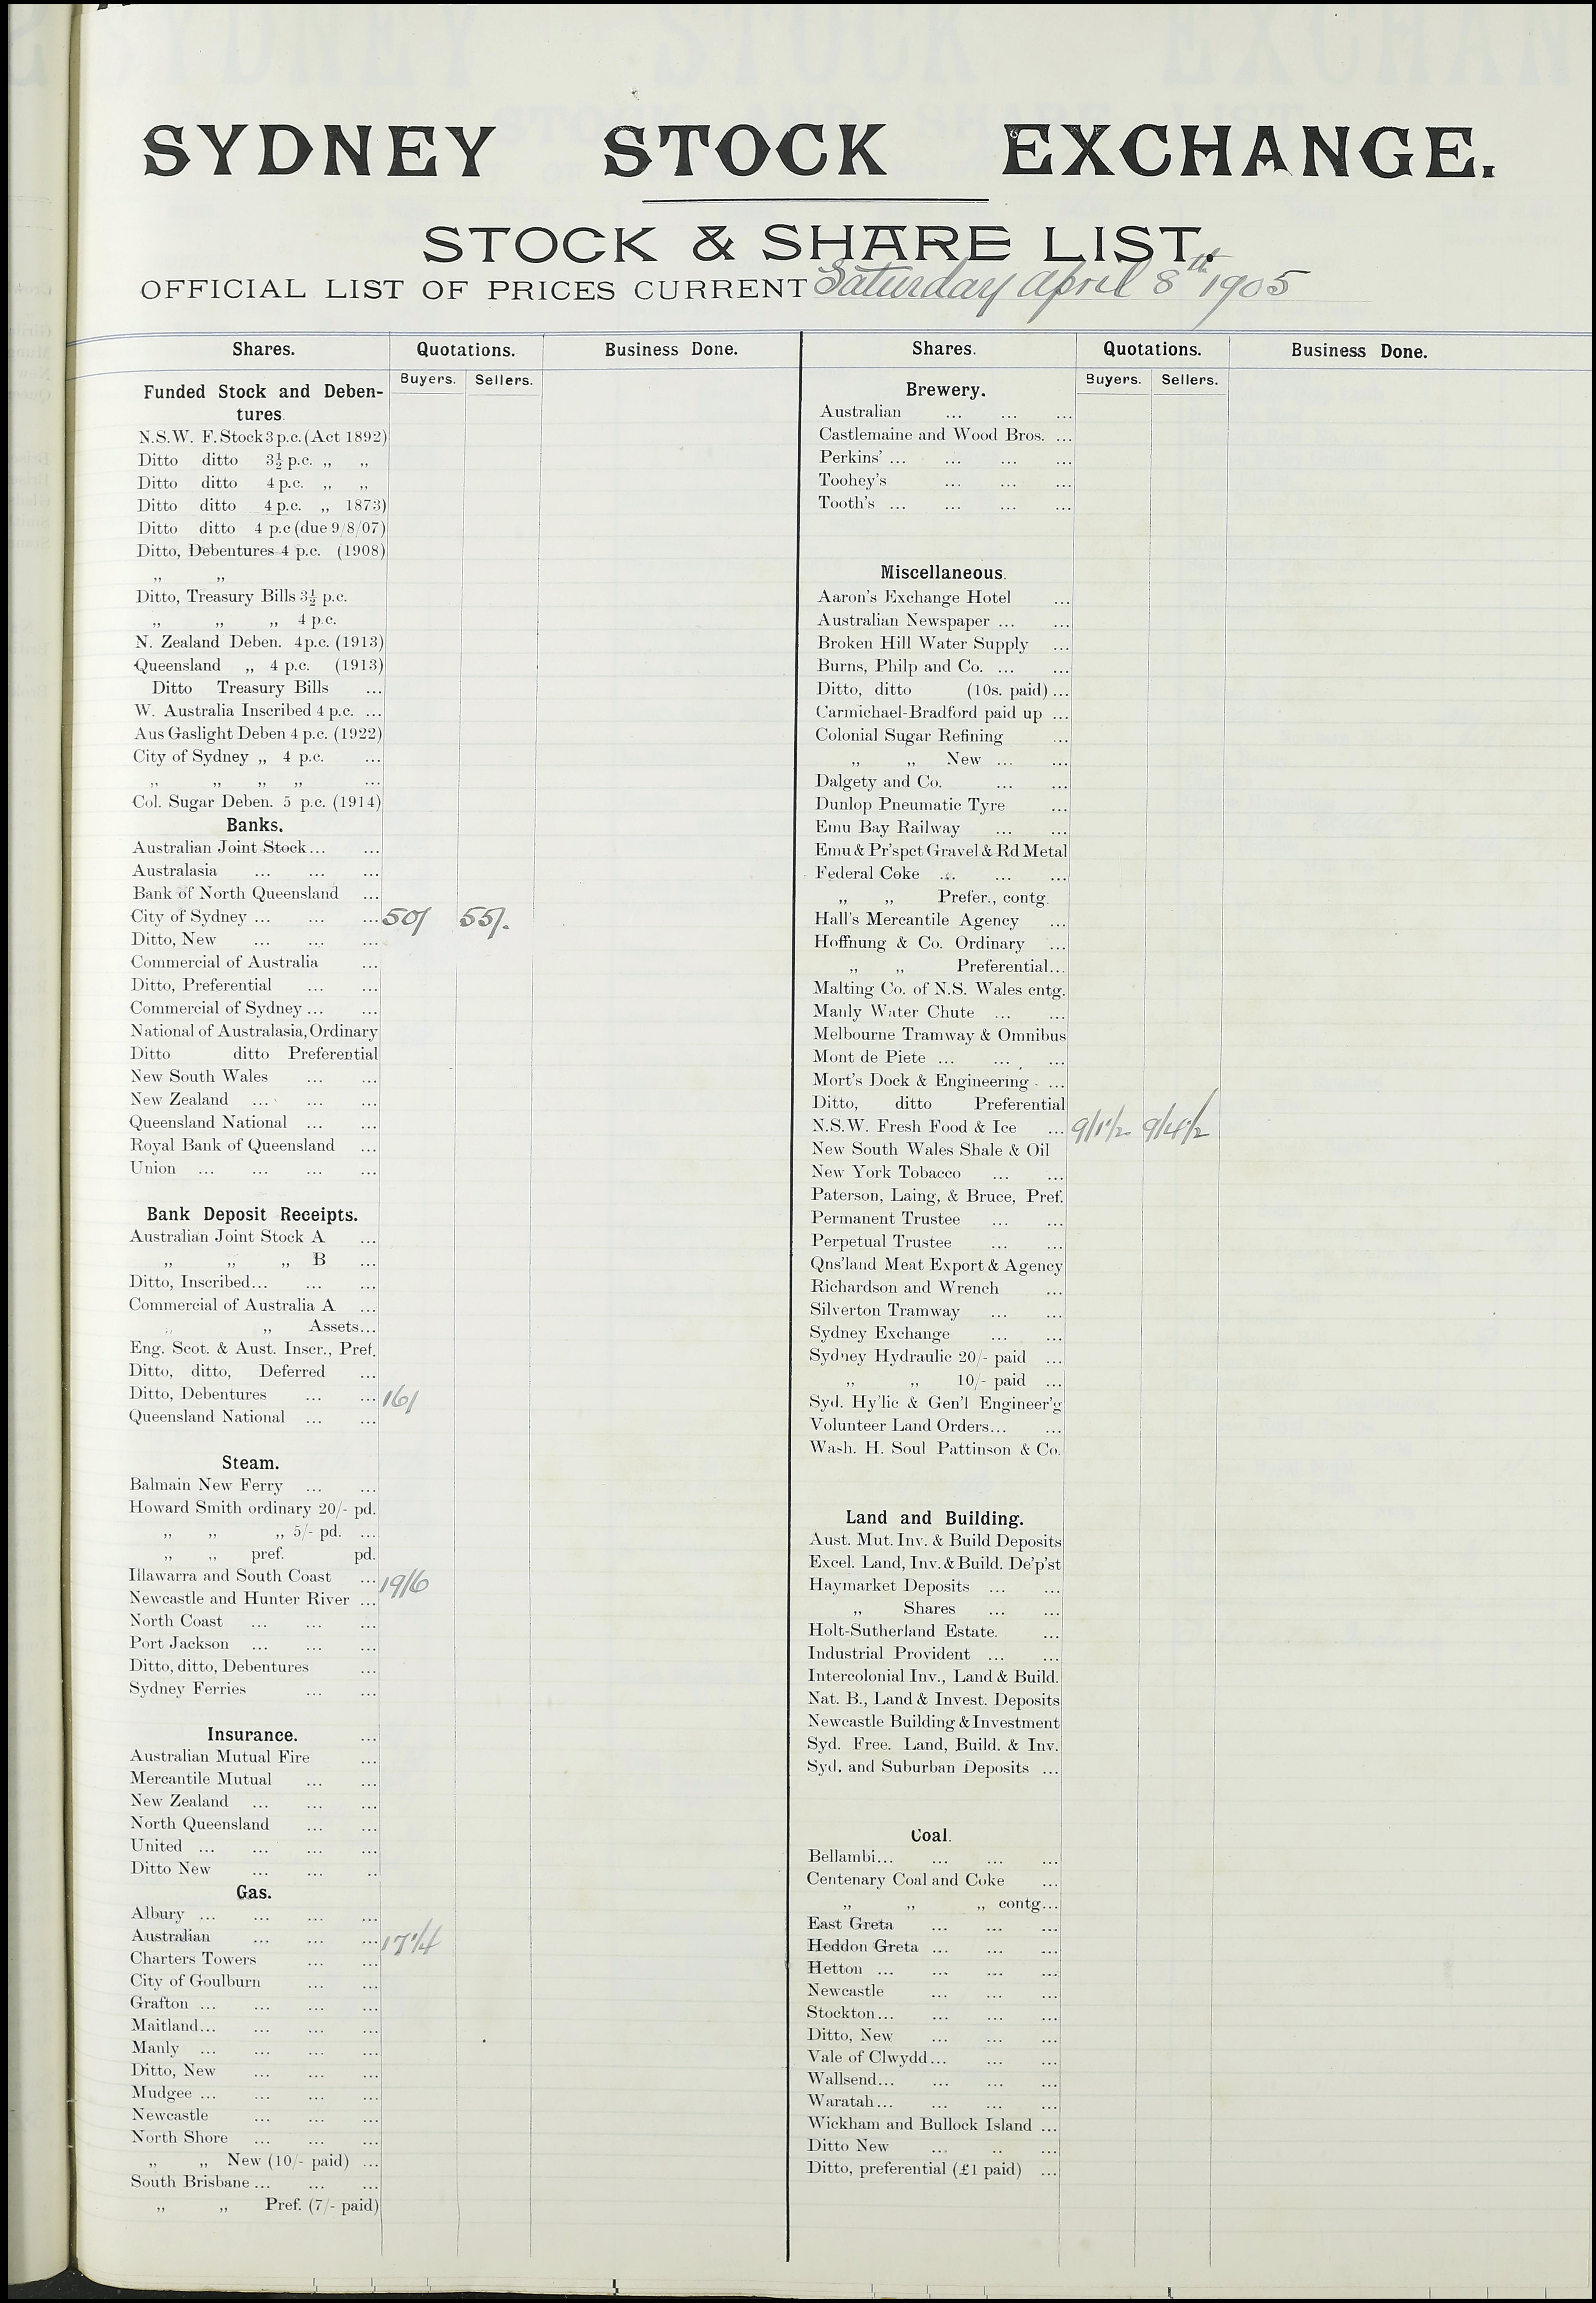 SYDNEY STOCK EXCHANGE.
STOCK & SHARE LIST.
OFFICIAL LIST OF PRICES CURRENT Saturday April 8th 1905
Shares. Quotations. Business Done.
Buyers. Sellers.
Funded Stock and Deben-
tures.
N.S.W. F. Stock 3 p.c. (Act 1892)
Ditto ditto 3½ p.c. ,, ,,
Ditto ditto 4 p.c. ,, ,,
Ditto ditto 4 p.c. ,, 1873)
Ditto ditto 4 p.c (due 9/8/07)
Ditto, Debentures 4 p.c. (1908)
,, ,,
Ditto, Treasury Bills 3½ p.c.
,, ,, ,, 4 p.c.
N. Zealand Deben. 4 p.c. (1913)
Queensland ,, 4 p.c. (1913)
Ditto Treasury Bills ...
W. Australia Inscribed 4 p.c. ...
Aus Gaslight Deben 4 p.c. (1922)
City of Sydney ,, 4 p.c. ...
,, ,, ,, ,, ...
Col. Sugar Deben. 5 p.c. (1914)
Banks.
Australian Joint Stock... ...
Australasia ... ... ...
Bank of North Queensland ...
City of Sydney ... ... ... 50/ 55/.
Ditto, New ... ... ...
Commercial of Australia ...
Ditto, Preferential ... ...
Commercial of Sydney ... ...
National of Australasia, Ordinary
Ditto ditto Preferential
New South Wales ... ...
New Zealand ... ... ...
Queensland National ... ...
Royal Bank of Queensland ...
Union ... ... ... ...
Bank Deposit Receipts.
Australian Joint Stock A ...
,, ,, ,, B ...
Ditto, Inscribed... ... ...
Commercial of Australia A ...
,, ,, Assets...
Eng. Scot. & Aust. Inscr., Pref.
Ditto, ditto, Deferred ...
Ditto, Debentures ... ... 16/
Queensland National ... ...
Steam.
Balmain New Ferry ... ...
Howard Smith ordinary 20/- pd.
,, ,, ,, 5/- pd. ...
,, ,, pref. pd.
Illawarra and South Coast ... 19/6
Newcastle and Hunter River ...
North Coast ... ... ...
Port Jackson ... ... ...
Ditto, ditto, Debentures ...
Sydney Ferries ... ...
Insurance. ...
Australian Mutual Fire ...
Mercantile Mutual ... ...
New Zealand ... ... ...
North Queensland ... ...
United ... ... ... ...
Ditto New ... ... ..
Gas.
Albury ... ... ... ...
Australian ... ... ... 17¼
Charters Towers ... ...
City of Goulburn ... ...
Grafton ... ... ... ...
Maitland... ... ... ...
Manly ... ... ... ...
Ditto, New ... ... ...
Mudgee ... ... ... ...
Newcastle ... ... ...
North Shore ... ... ...
,, ,, New (10/- paid) ...
South Brisbane ... ... ...
,, ,, Pref. (7/- paid)
Shares. Quotations. Business Done.
Buyers. Sellers.
Brewery.
Australian ... ... ...
Castlemaine and Wood Bros. ...
Perkins' ... ... ... ...
Toohey's ... ... ...
Tooth's ... ... ... ...
Miscellaneous.
Aaron's Exchange Hotel ...
Australian Newspaper ... ...
Broken Hill Water Supply ...
Burns, Philp and Co. ... ...
Ditto, ditto (10s. paid) ...
Carmichael-Bradford paid up ...
Colonial Sugar Refining ...
,, ,, New ... ...
Dalgety and Co. ... ...
Dunlop Pneumatic Tyre ...
Emu Bay Railway ... ...
Emu & Pr'spct Gravel & Rd Metal
Federal Coke ... ... ...
,, ,, Prefer., contg.
Hall's Mercantile Agency ...
Hoffnung & Co. Ordinary ...
,, ,, Preferential...
Malting Co. of N.S. Wales cntg.
Manly Water Chute ... ...
Melbourne Tramway & Omnibus
Mont de Piete ... ... ...
Mort's Dock & Engineering ...
Ditto, ditto Preferential
N.S.W. Fresh Food & Ice ... 9/1½ 9/4½
New South Wales Shale & Oil
New York Tobacco ... ...
Paterson, Laing, & Bruce, Pref.
Permanent Trustee ... ...
Perpetual Trustee ... ...
Qns'land Meat Export & Agency
Richardson and Wrench ...
Silverton Tramway ... ...
Sydney Exchange ... ...
Sydney Hydraulic 20/- paid ...
,, ,, 10/- paid ...
Syd. Hy'lic & Gen'l Engineer'g
Volunteer Land Orders... ...
Wash. H. Soul Pattinson & Co.
Land and Building.
Aust. Mut. Inv. & Build Deposits
Excel. Land, Inv. & Build. De'p'st
Haymarket Deposits ... ...
,, Shares ... ...
Holt-Sutherland Estate. ...
Industrial Provident ... ...
Intercolonial Inv., Land & Build.
Nat. B., Land & Invest. Deposits
Newcastle Building & Investment
Syd. Free. Land, Build. & Inv.
Syd. and Suburban Deposits ...
Coal.
Bellambi... ... ... ...
Centenary Coal and Coke ...
,, ,, ,, contg...
East Greta ... ... ...
Heddon Greta ... ... ...
Hetton ... ... ... ...
Newcastle ... ... ...
Stockton... ... ... ...
Ditto, New ... ... ...
Vale of Clwydd... ... ...
Wallsend... ... ... ...
Waratah... ... ... ...
Wickham and Bullock Island ...
Ditto New ... .. ...
Ditto, preferential (£1 paid) ...